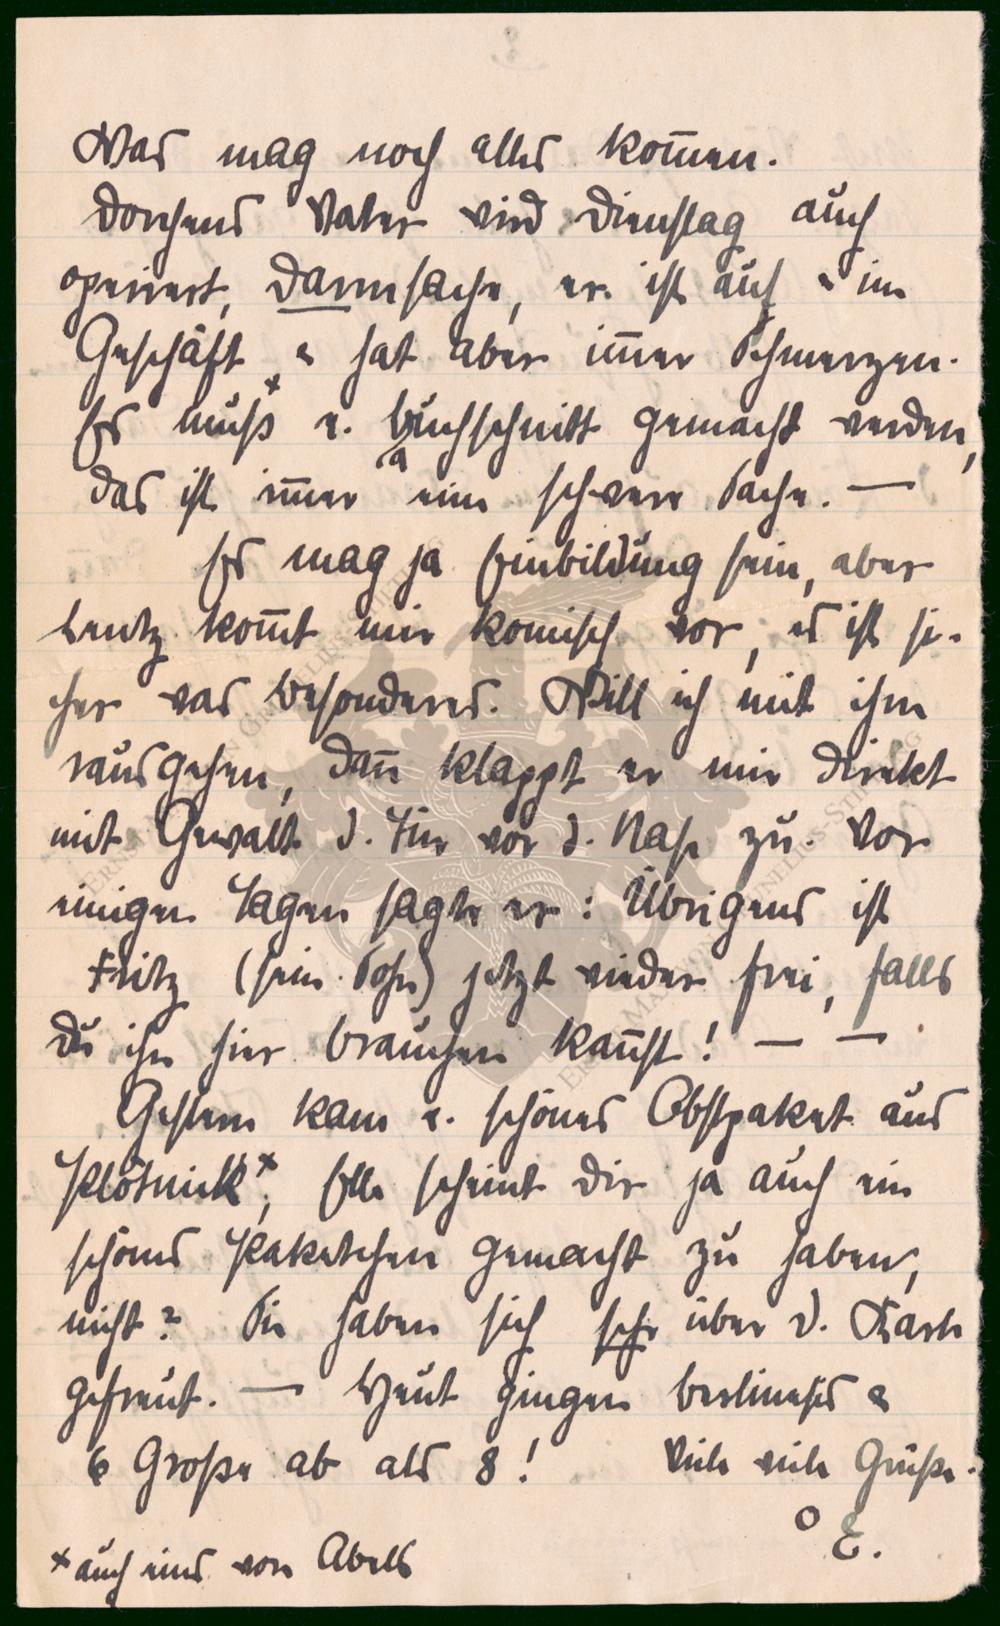 Was mag noch alles kom̅en.
Dorchens Vater wird Dienstag auch
operiert, Darmsache, er ist auf u im
Geschäft u hat aber im̅er Schmerzen.
Es muß x e. Bauchschnitt gemacht werden,
das ist im̅er eine schwere Sache. —
Es mag ja Einbildung sein, aber
Lentz kom̅t mir komisch vor, es ist si-
cher was besonderes. Will ich mit ihm
rausgehen, dan̅ klappt er mir direkt
mit Gewalt d. Tür vor d. Nase zu. Vor
einigen Tagen sagte er: Übrigens ist
Fritz (sein Sohn) jetzt wieder frei, falls
Du ihn hier brauchen kan̅st! — —
Gestern kam e. schönes Obstpaket aus
Plötnick x, Elle scheint Dir ja auch ein
schönes Paketchen gemacht zu haben,
nicht? Sie haben sich sehr über d. Karte
gefreut. — Heut gingen berlinches u
6 Große ab als 8! Viele viele Grüße.
O E.
x auch eins von Abels
ERNST MARTIN CORNELIUS-STIFTUNG